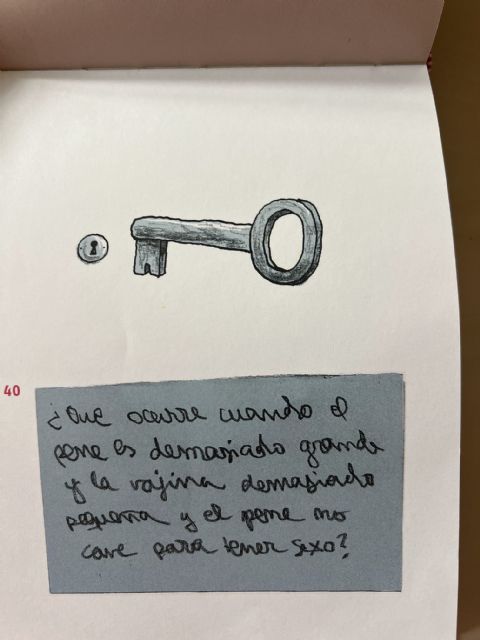 40
¿Que ocurre cuando el
pene es demasiado grande
y la vajina demasiado
pequeña y el pene no
cave para tener sexo?